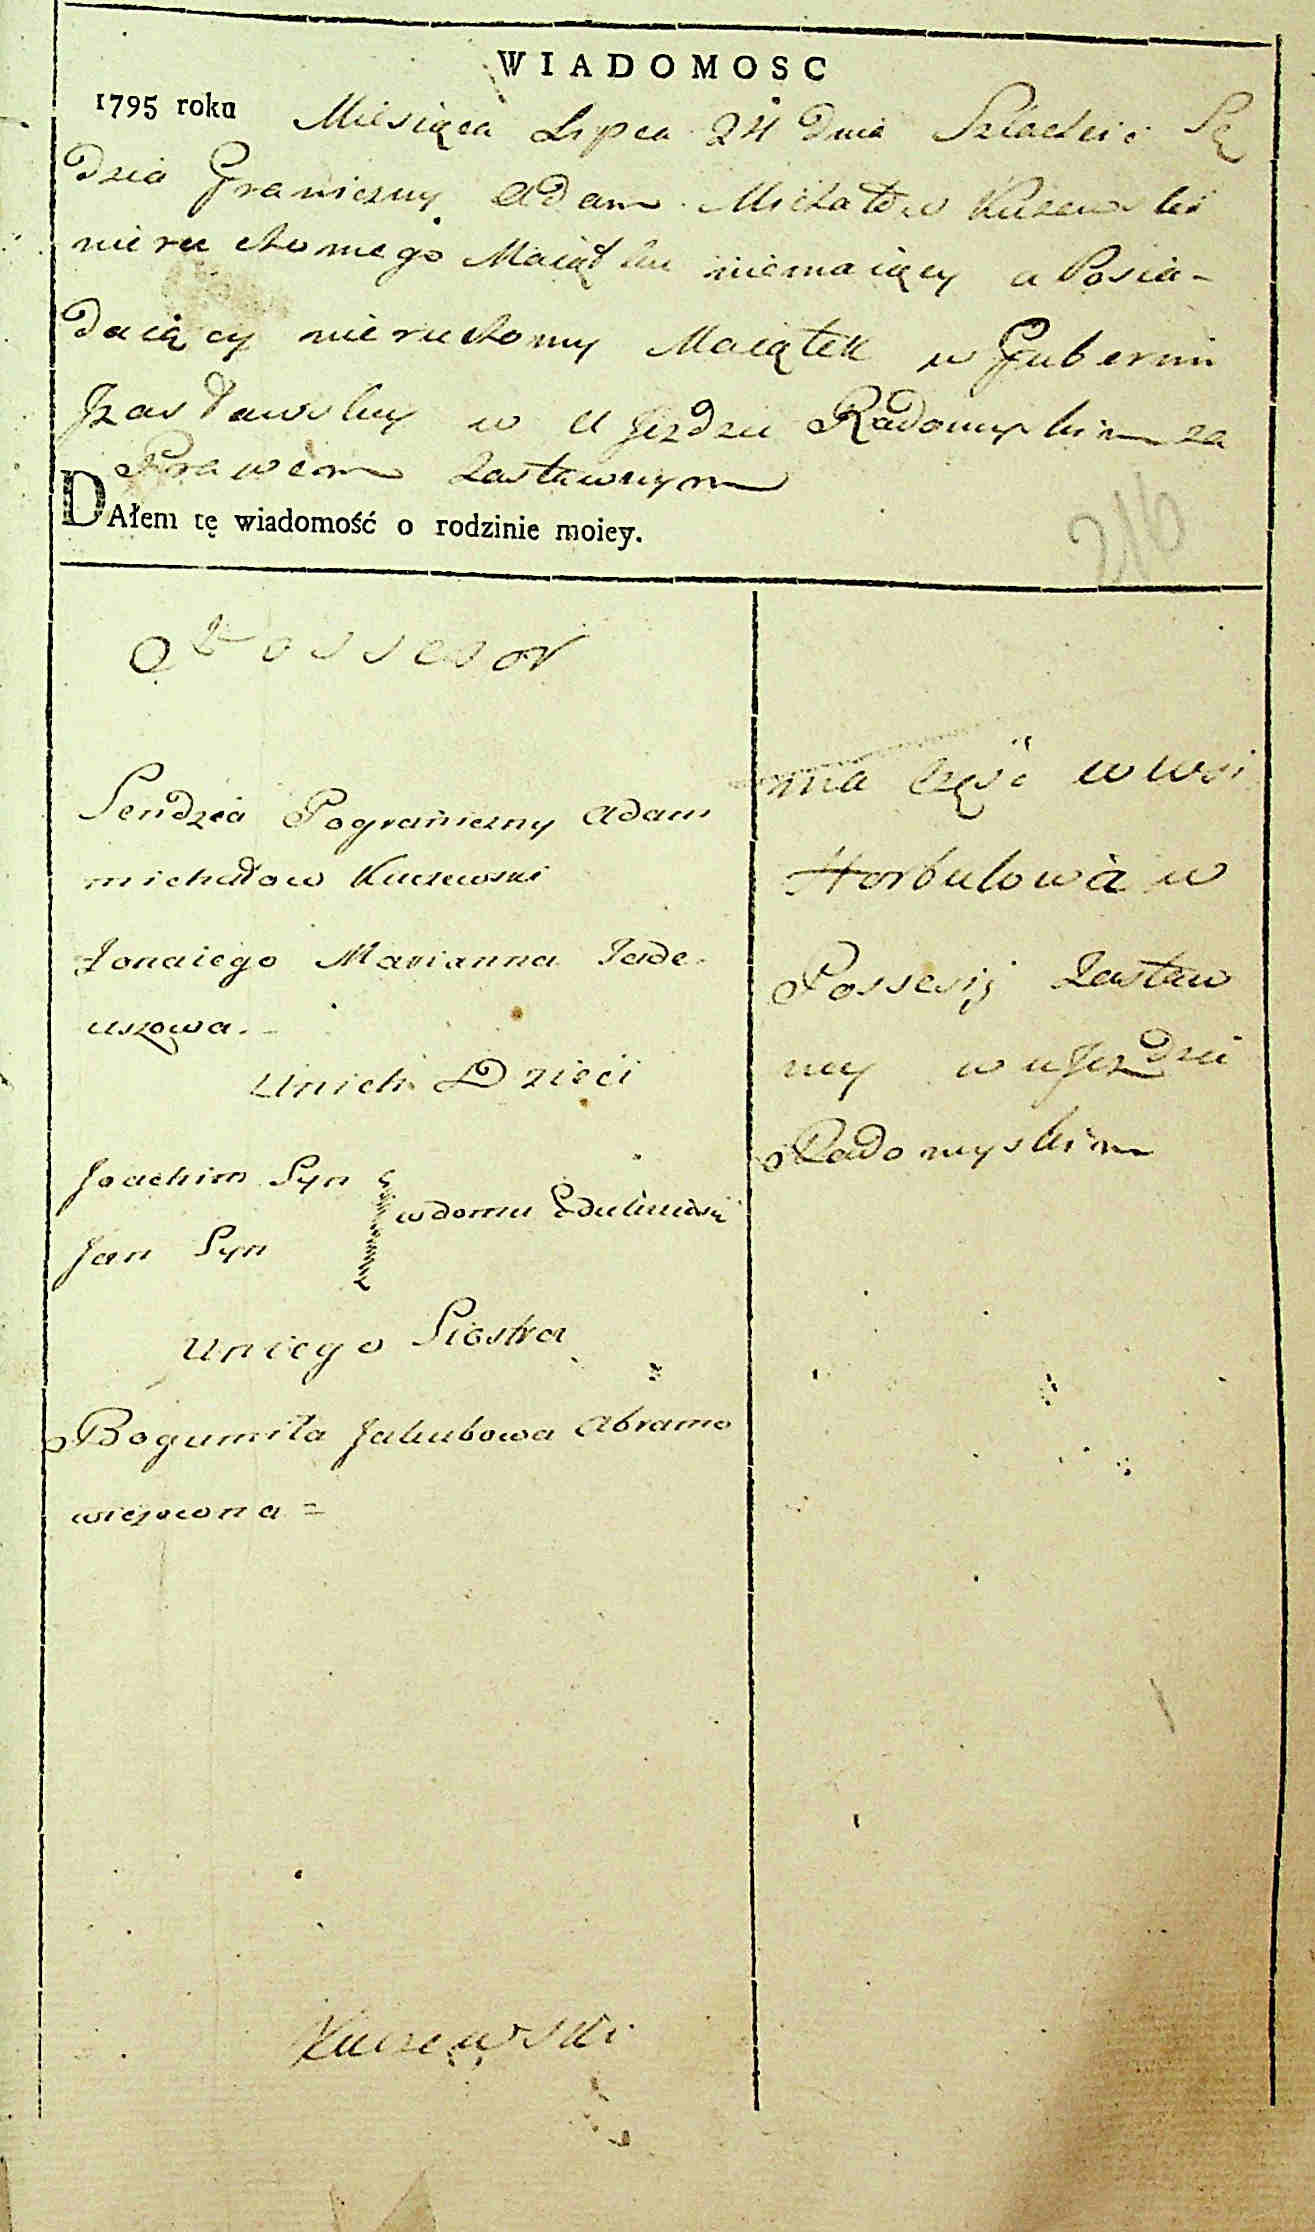 WIADOMOSC
1795 roku Miesiąca Lipca 24 Dnia Szlachcic Sę
dzia Graniczny Adam Michałow Kuczewski
nieruchomego Maiątku niemaiący a Posia-
daiący nieruchomy Maiątek w Gubernii
Jzasławskiy w UJezdzie Radomyskim za
Prawem Zastawnym
DAłem tę wiadomość o rodzinie moiey.
216
Possesor
Sendzia Pograniczny Adam
michałow Kuczewski
Żonaiego Marianna Tade-
uszowa.-
Unich Dzieci
Joachim Syn
Jan Syn
wdomu
Uniego Siostra
Bogumiła Jakubowa Abramo
wiczowna =
ma częsć w wsi
Horbulowa w
Possesij Zastaw
ney w uJezdzie
Radomyskim
Kuczewski